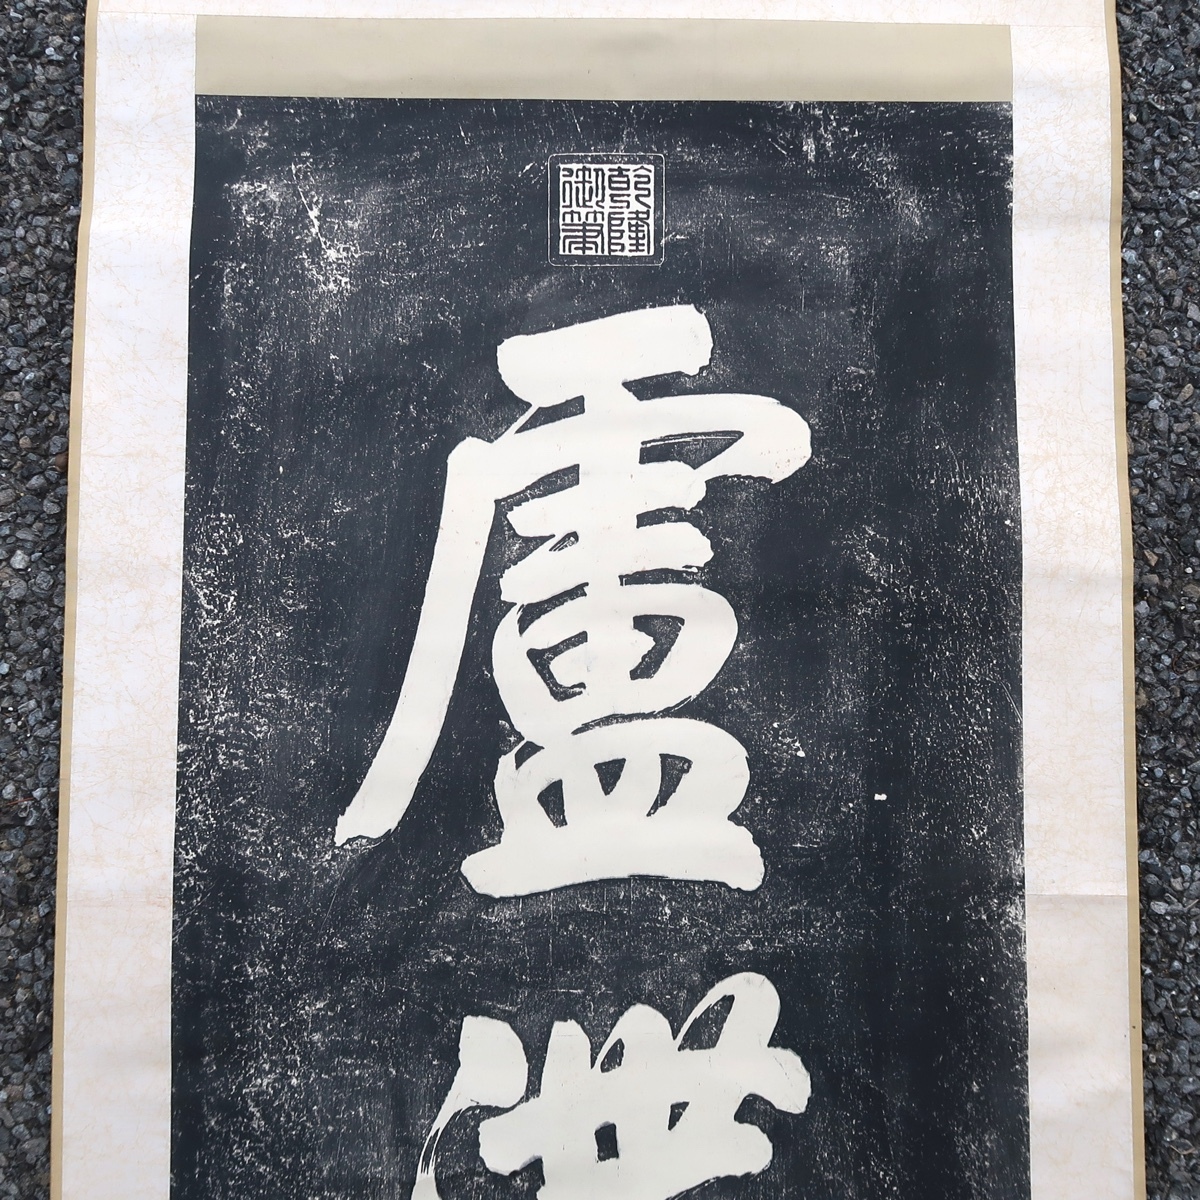 乾隆
御筆
盧
溝